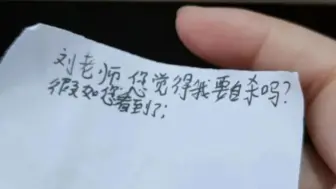 刘老师您觉得我要自杀吗？
很如您看到了；